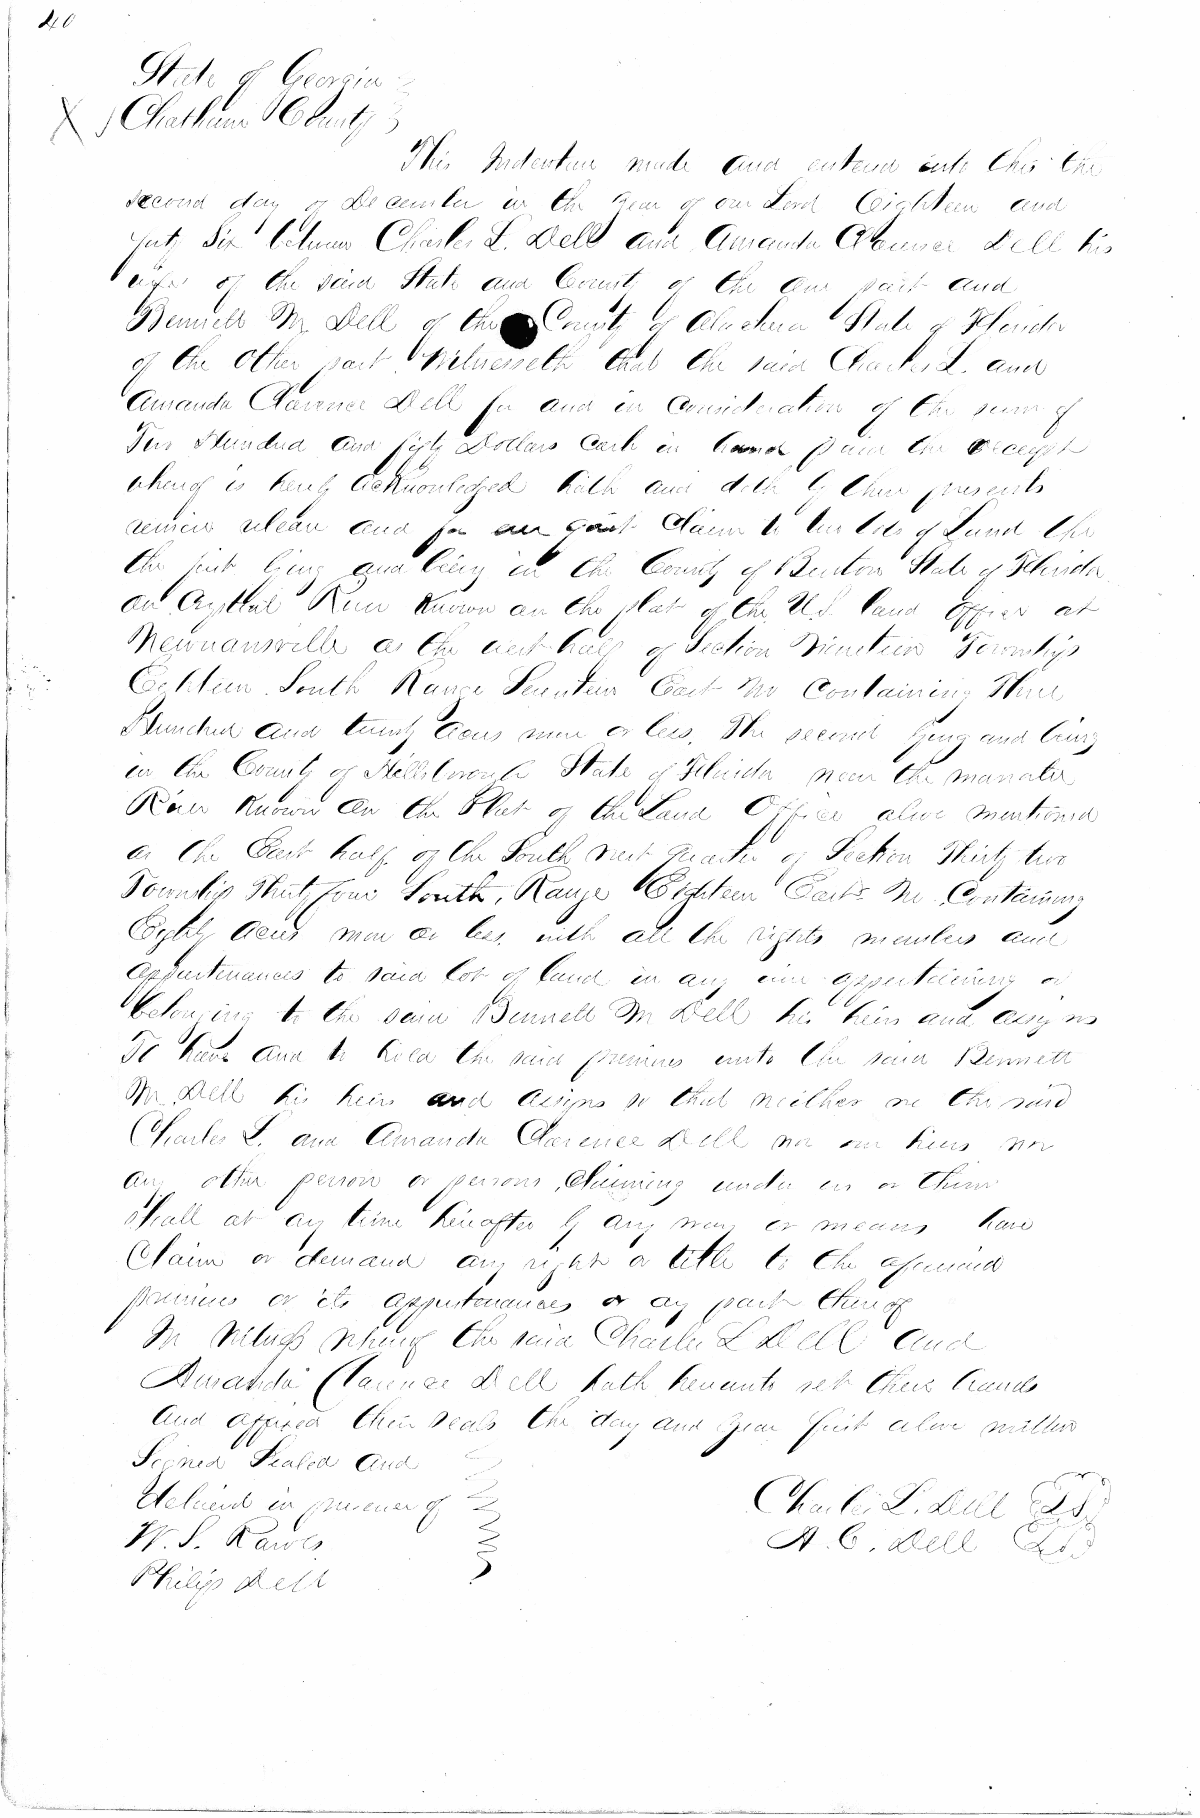 40
State of Georgia
Chatham County
This Indenture made and entered into this the
second day of December in the year of our Lord Eighteen and
forty Six between Charles L. Dell and Amanda Clarence Dell his
wife of the said State and County of the one part and
Bennett M. Dell of the County of Alachua State of Florida
of the other part Witnesseth that the said Charles L. and
Amanda Clarence Dell for and in consideration of the sum of
Hundred and fifty Dollars cash in hand paid the receipt
whereof is hereby acknowledged hath and doth by these presents
remise release and for quit Claim to two lots of Land the
the first lying and being in the County of Benton State of Florida
on Crystal River known on the plat of the U.S. land office at
Newnansville as the west half of Section Nineteen Township
Eighteen South Range Seventeen East No containing Three
Hundred and twenty acres more or less. The second lying and being
in the County of Hillsborough State of Florida near the manatee
River known on the Plat of the Land Office above mentioned
as the East half of the South west quarter of Section Thirty two
Township Thirty four South, Range Eighteen East No Containing
Eighty acres more or less, with all the rights members and
appurtenances to said lot of land in any wise appertaining or
belonging to the said Bennett M Dell his heirs and assigns
To have and to hold the said premises unto the said Bennett
M. Dell his heirs and assigns so that neither we the said
Charles L. and Amanda Clarence Dell nor our heirs nor
any other person or persons claiming under us or them
shall at any time hereafter by any way or means have
Claim or demand any right or title to the aforesaid
premises or its appurtenances or any part thereof
In Witness whereof the said Charles L Dell and
Amanda Clarence Dell hath hereunto set their hands
and affixed their seals the day and year first above written
Signed Sealed and
delivered in presence of
W. S. Rawls
Philip Dell
Charles L. Dell LS
A. C. Dell LS